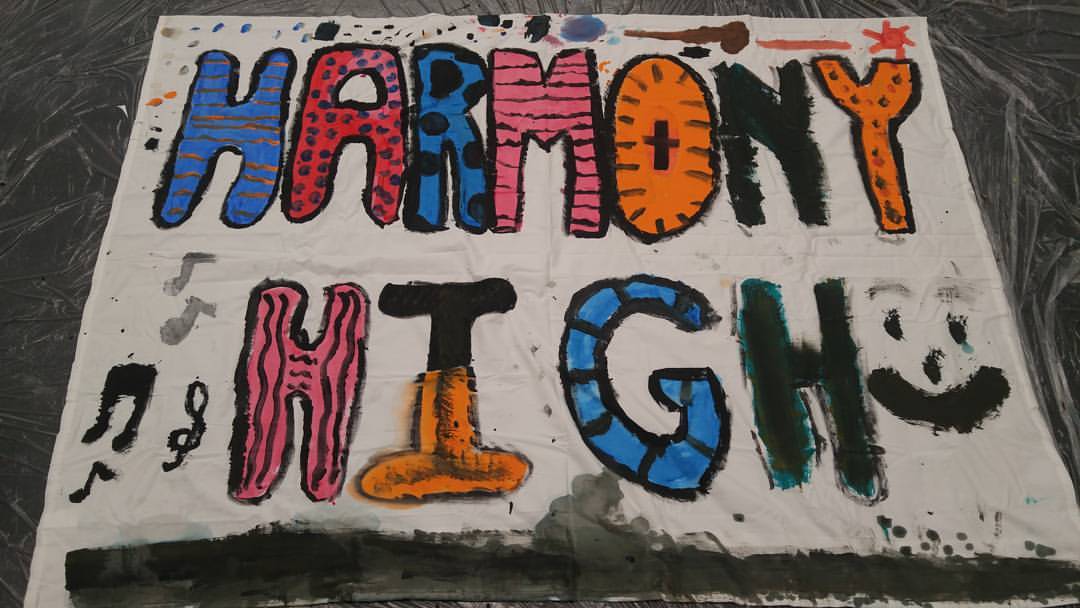 HARMONY
HIGH